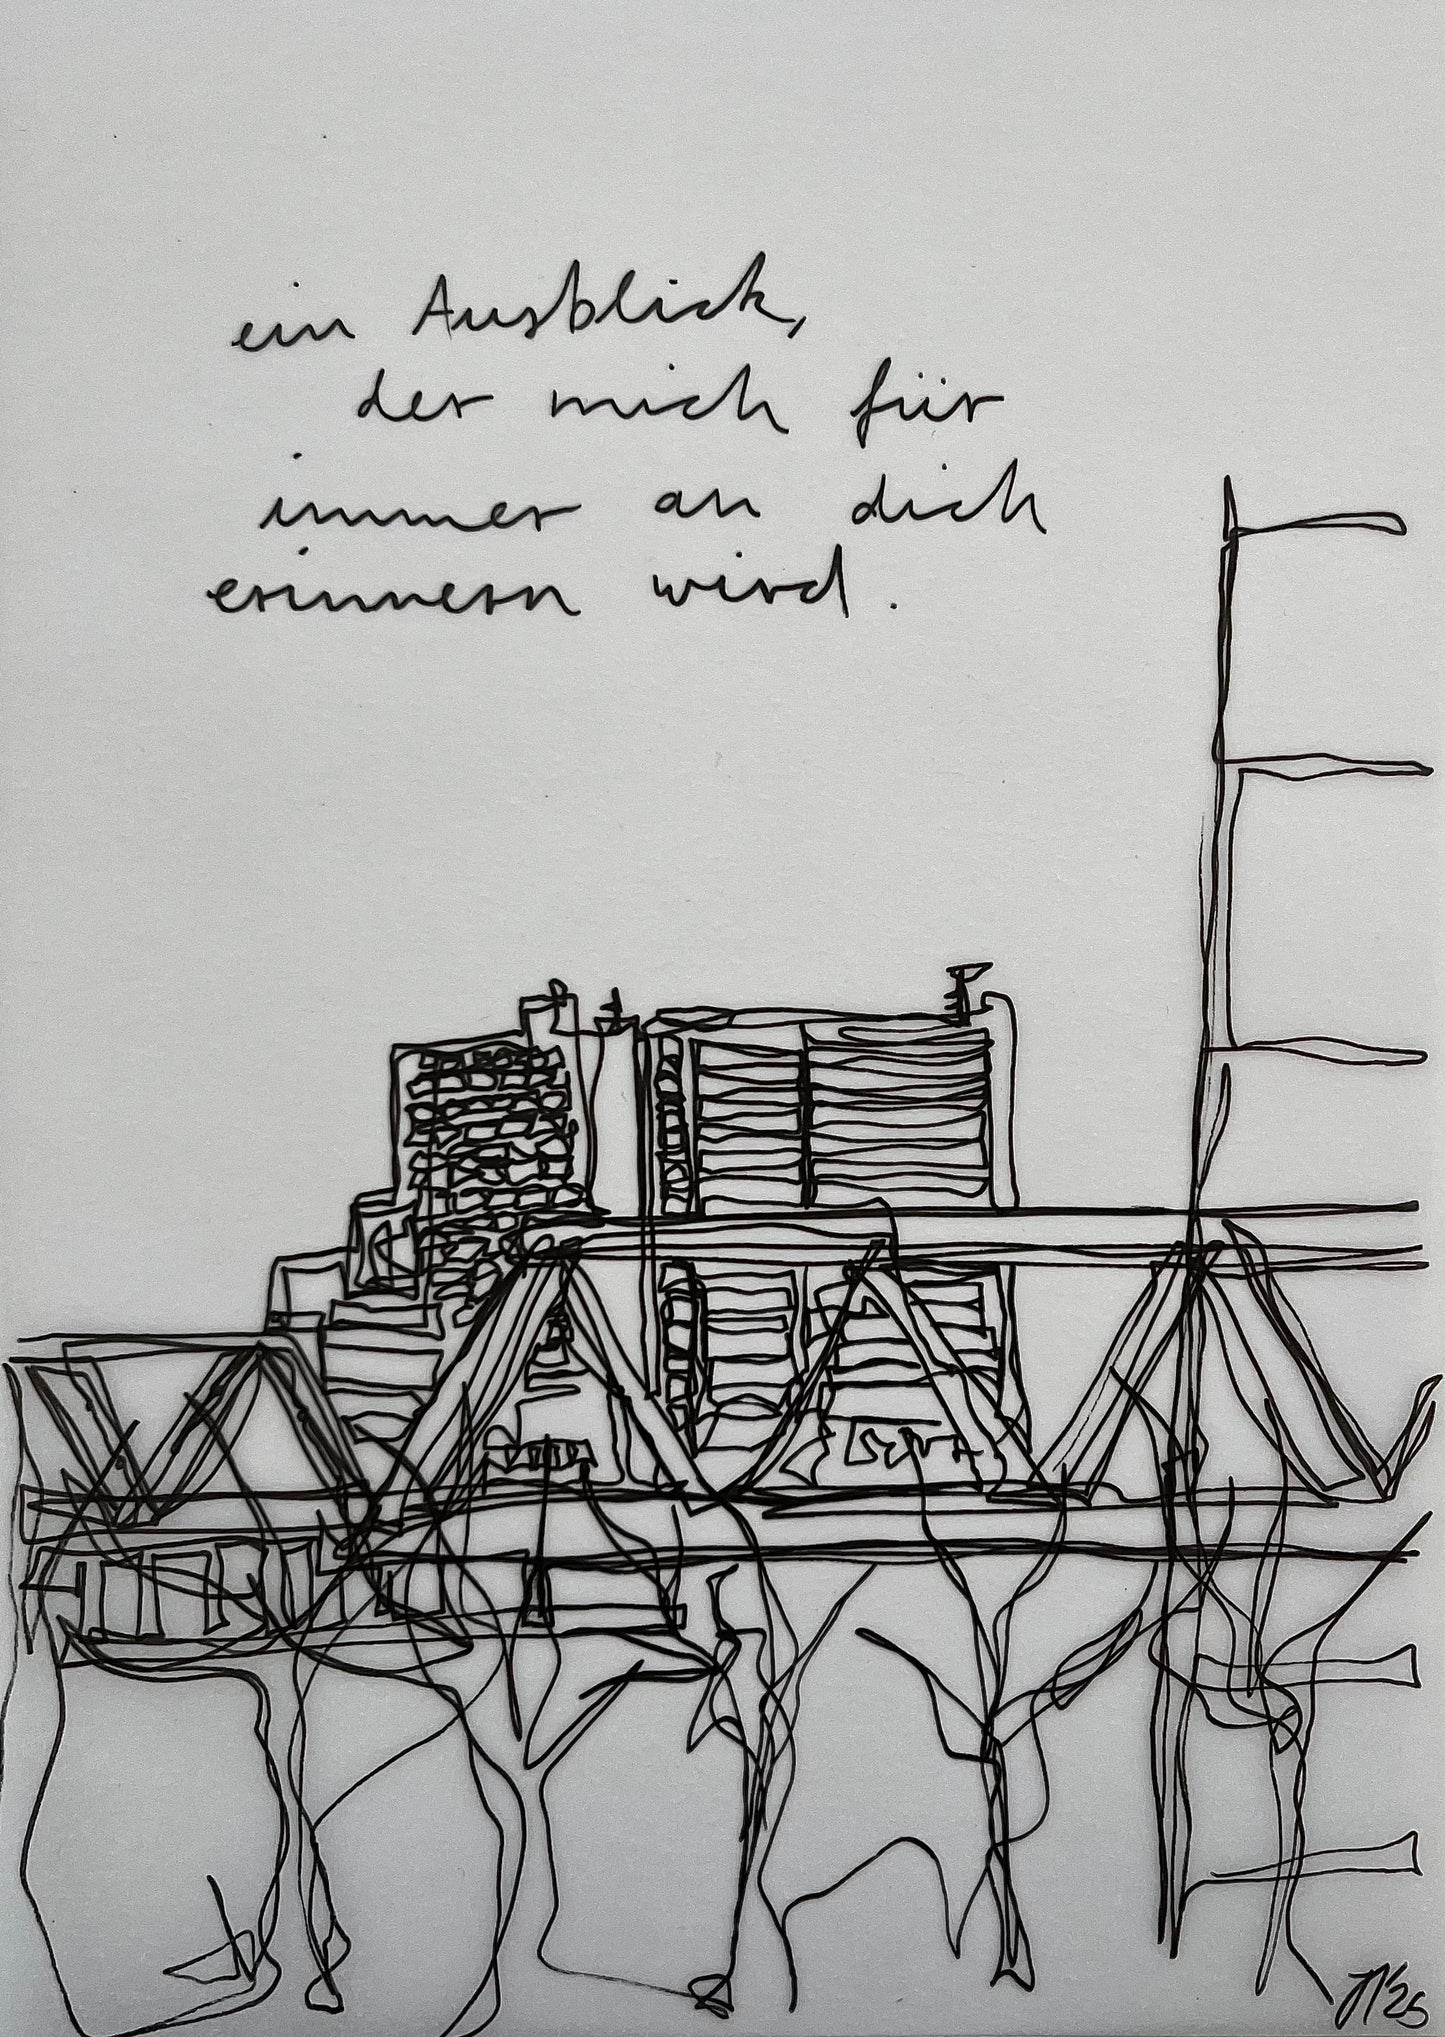 ein Ausblick,
der mich für
immer an dich
erinnern wird.